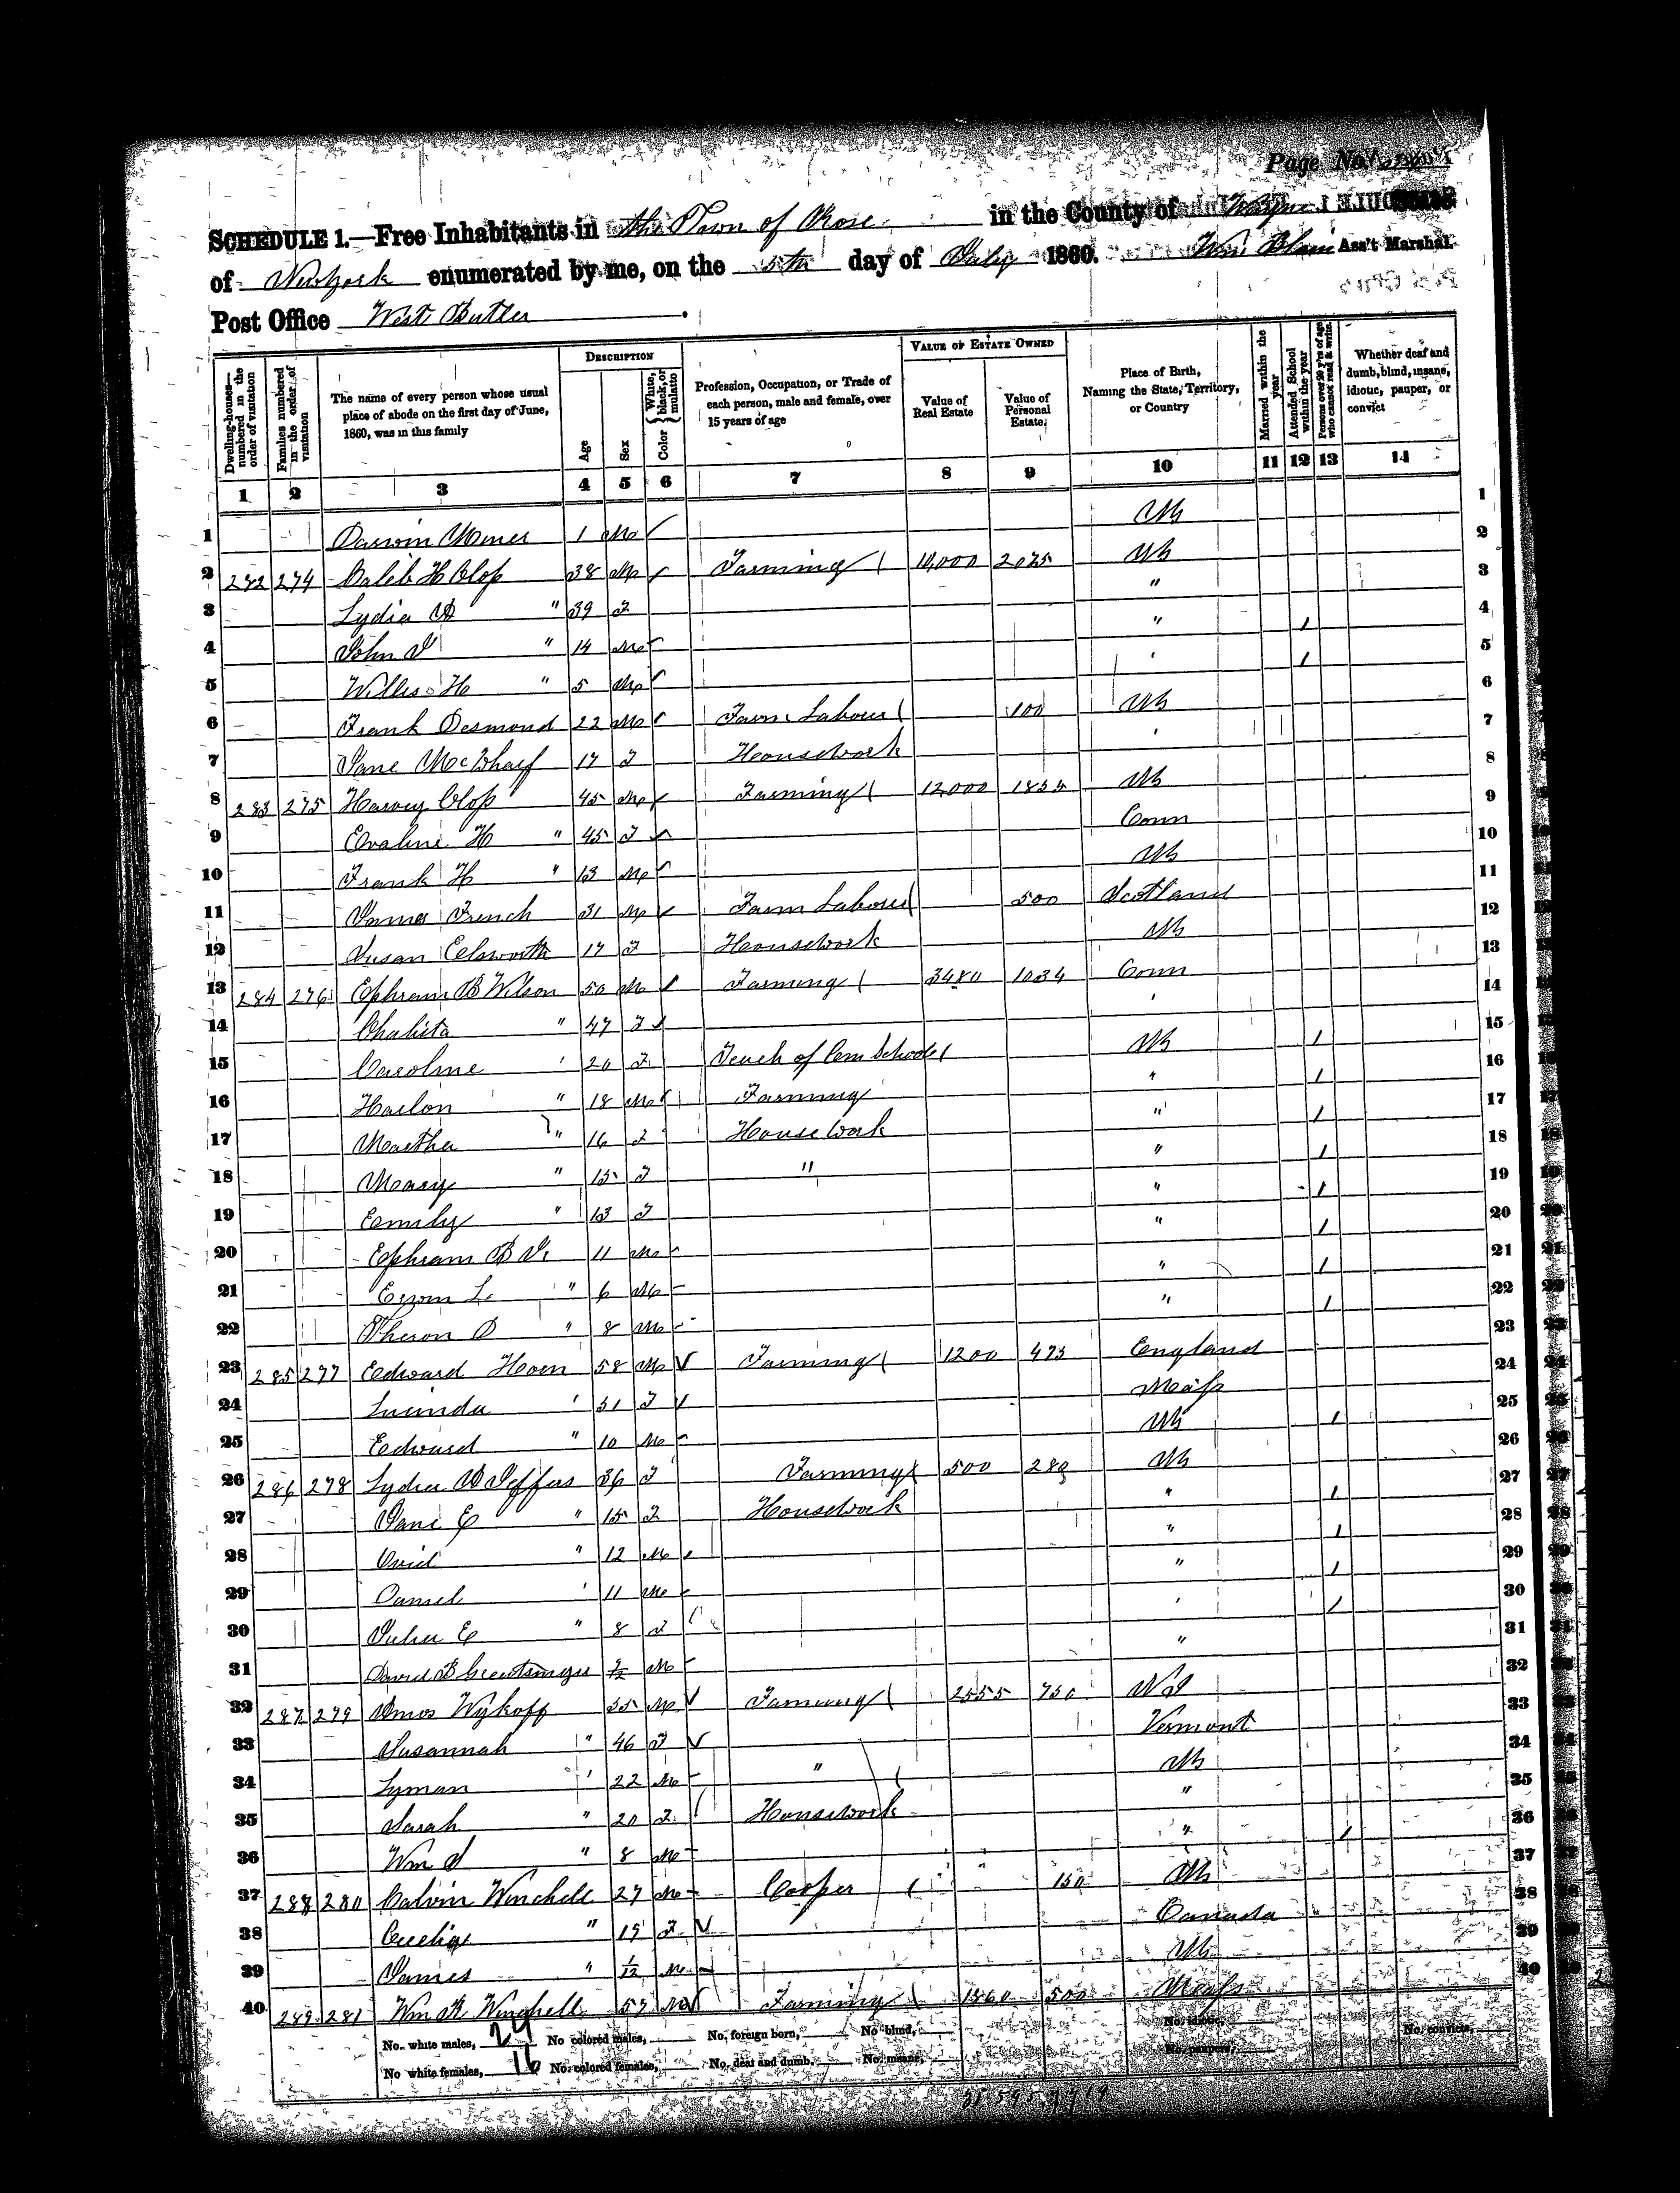 Page No.
SCHEDULE 1.—Free Inhabitants in the Town of Rose in the County of Wayne
of New York enumerated by me, on the 5th day of July 1860. Wm Blain Ass't Marshal.
Post Office West Butler
Dwelling-houses—numbered in the order of visitation
Families numbered in the order of visitation
The name of every person whose usual place of abode on the first day of June, 1860, was in this family
DESCRIPTION
Age
Sex
Color { White, black, or mulatto
Profession, Occupation, or Trade of each person, male and female, over 15 years of age
VALUE OF ESTATE OWNED
Value of Real Estate
Value of Personal Estate.
Place of Birth, Naming the State, Territory, or Country
Married within the year
Attended School within the year
Persons over 20 y'rs of age who cannot read & write.
Whether deaf and dumb, blind, insane, idiotic, pauper, or convict
1 2 3 4 5 6 7 8 9 10 11 12 13 14
1 Darwin 1 M 1
2 282 274 Caleb H Closs 38 M Farming 2025 2
3 Lydia " 39 F " 3
4 John " 14 M " 1 4
5 Willis H " 5 M " 1 5
6 Frank Desmond 22 M Farm Labour 100 6
7 Jane 17 F Housework " 7
8 283 275 Harvey Closs 45 M Farming 12,000 8
9 Evaline H " 45 F Conn 9
10 Frank H " 13 M 10
11 James French 31 M Farm Labour 500 Scotland 11
12 Susan Elsworth 17 F Housework 12
13 284 276 Ephram B Wilson 50 M Farming 3480 1034 Conn 13
14 " 47 F " 14
15 Caroline " 20 F Teach of Com School 1 15
16 Harlon " 18 M Farming " 1 16
17 Martha " 16 F House Work " 1 17
18 Mary " 15 F " " 1 18
19 Emily " 13 F " 1 19
20 Ephram B 11 M " 1 20
21 " 6 M " 1 21
22 Theron D " 8 M " 1 22
23 285 277 Edward Horn 58 M Farming 1200 475 England 23
24 Lucinda " 51 F Mass 24
25 Edward " 10 M 1 25
26 286 278 Lydia Jeffers 36 F Farming 500 280 26
27 Jane E " 15 F Housework " 1 27
28 Ovid " 12 M " 1 28
29 " 11 M " 1 29
30 Julia E " 8 F " 1 30
31 David B M " 31
32 287 279 Amos Wykoff 55 M Farming 2555 750 N J 32
33 Susannah " 46 F Vermont 33
34 Lyman " 22 M " 34
35 Sarah " 20 F Housework " 35
36 Wm " 8 M " 1 36
37 288 280 Calvin Winchell 27 M Cooper 150 37
38 " 19 F Canada 38
39 James " 1/12 M 39
40 289 281 Wm Winchell 57 M Farming 500 Mass 40
No. white males, 24 No colored males, No. foreign born, No blind, No. idiotic, No. convicts,
No white females, 16 No. colored females, No. deaf and dumb, No. insane, No. paupers,